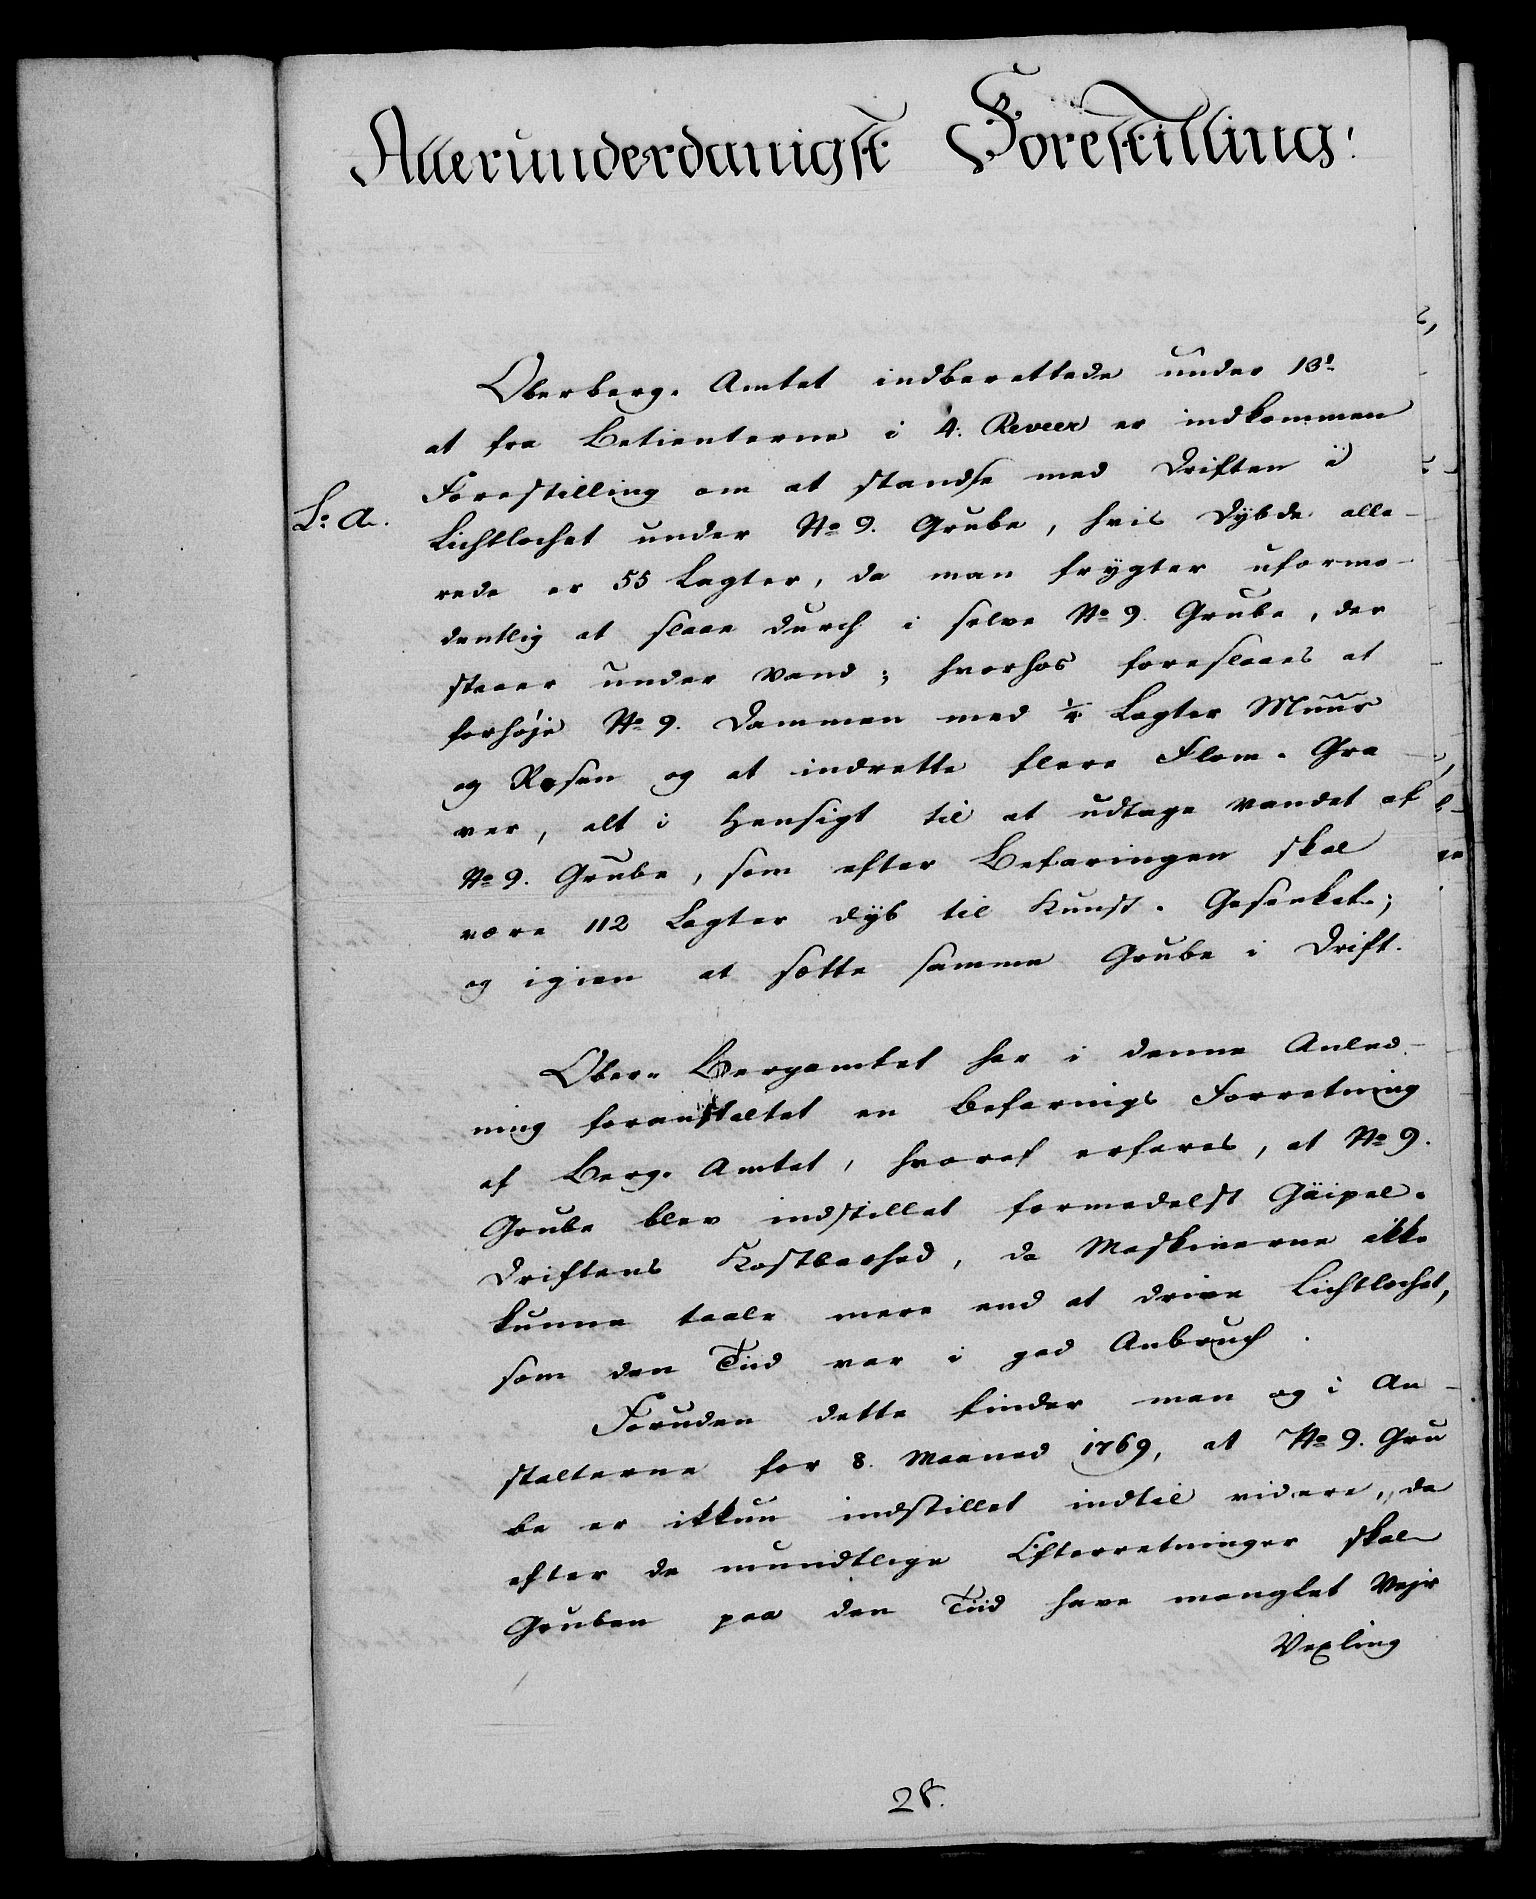 Allerunderdanigst Forestilling!
Oberberg-Amtet indberettede under 13!
at fra Betienterne i 4. Reveer er indkommen
Forestilling om at standse med Driften i
L: A. Lichtlochet under No 9. Grube, hvis Dybde alle-
rede er 55 Lagter, da man frygter uformo-
dentlig at slaae durch i selve No 9. Grube, der
staaer under Vand; hvorhos foreslaaes at
forhøje No 9. Dammen med ¼ Lagter Muur
og Rosen og at indrette flere Flom-Gra-
ver, alt i Hensigt til at udtage Vandet af
No 9. Grube, som efter Befaringen skal
være 112 Lagter dyb til Kunst-Gesenket;
og igien at sætte samme Grube i Drift.
Ober-Bergamtet har i denne Anled-
ning foranstaltet en Befarings Forretning
af Berg-Amtet, hvoraf erfares, at No 9.
Grube blev indstillet formedelst Gäipel-
Driftens Kostbarhed, da Maskinerne ikke
kunne taale mere end at drive Lichtlochet,
som den Tiid var i god Anbruch.
Foruden dette finder man og i An-
stalterne for 8. Maaned 1769, at No 9. Gru
be er ikkun indstillet indtil videre, da
efter de mundtlige Efterretninger skal
Gruben paa den Tiid have manglet Vejr
Vexling
28.